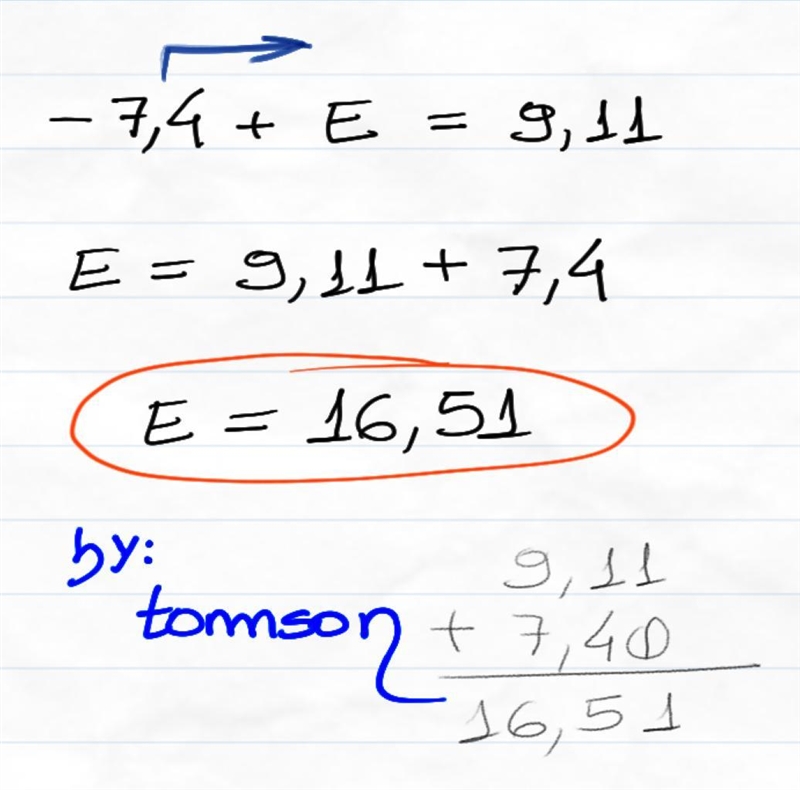 -7,4 + E = 9,11
E = 9,11 + 7,4
E = 16,51
by:
tomnson
9,11
+ 7,40
16,51